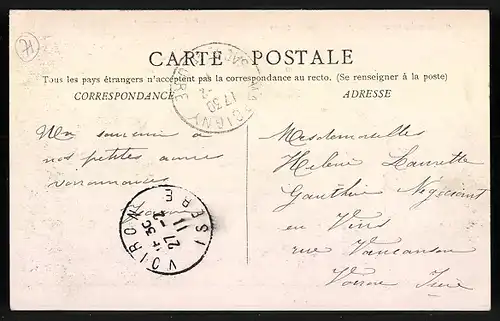 CARTE POSTALE
Tous les pays étrangers n'acceptent pas la correspondance au recto. (Se renseigner à la poste)
CORRESPONDANCE
ADRESSE
Un souvenir à
nos petites amies
Mesdemoiselles
Helene Laurette
Gauthier Négociant
en Vins
rue Vaucanson
Voiron Isère
17 30
VOIRON
ISERE
27 - 11